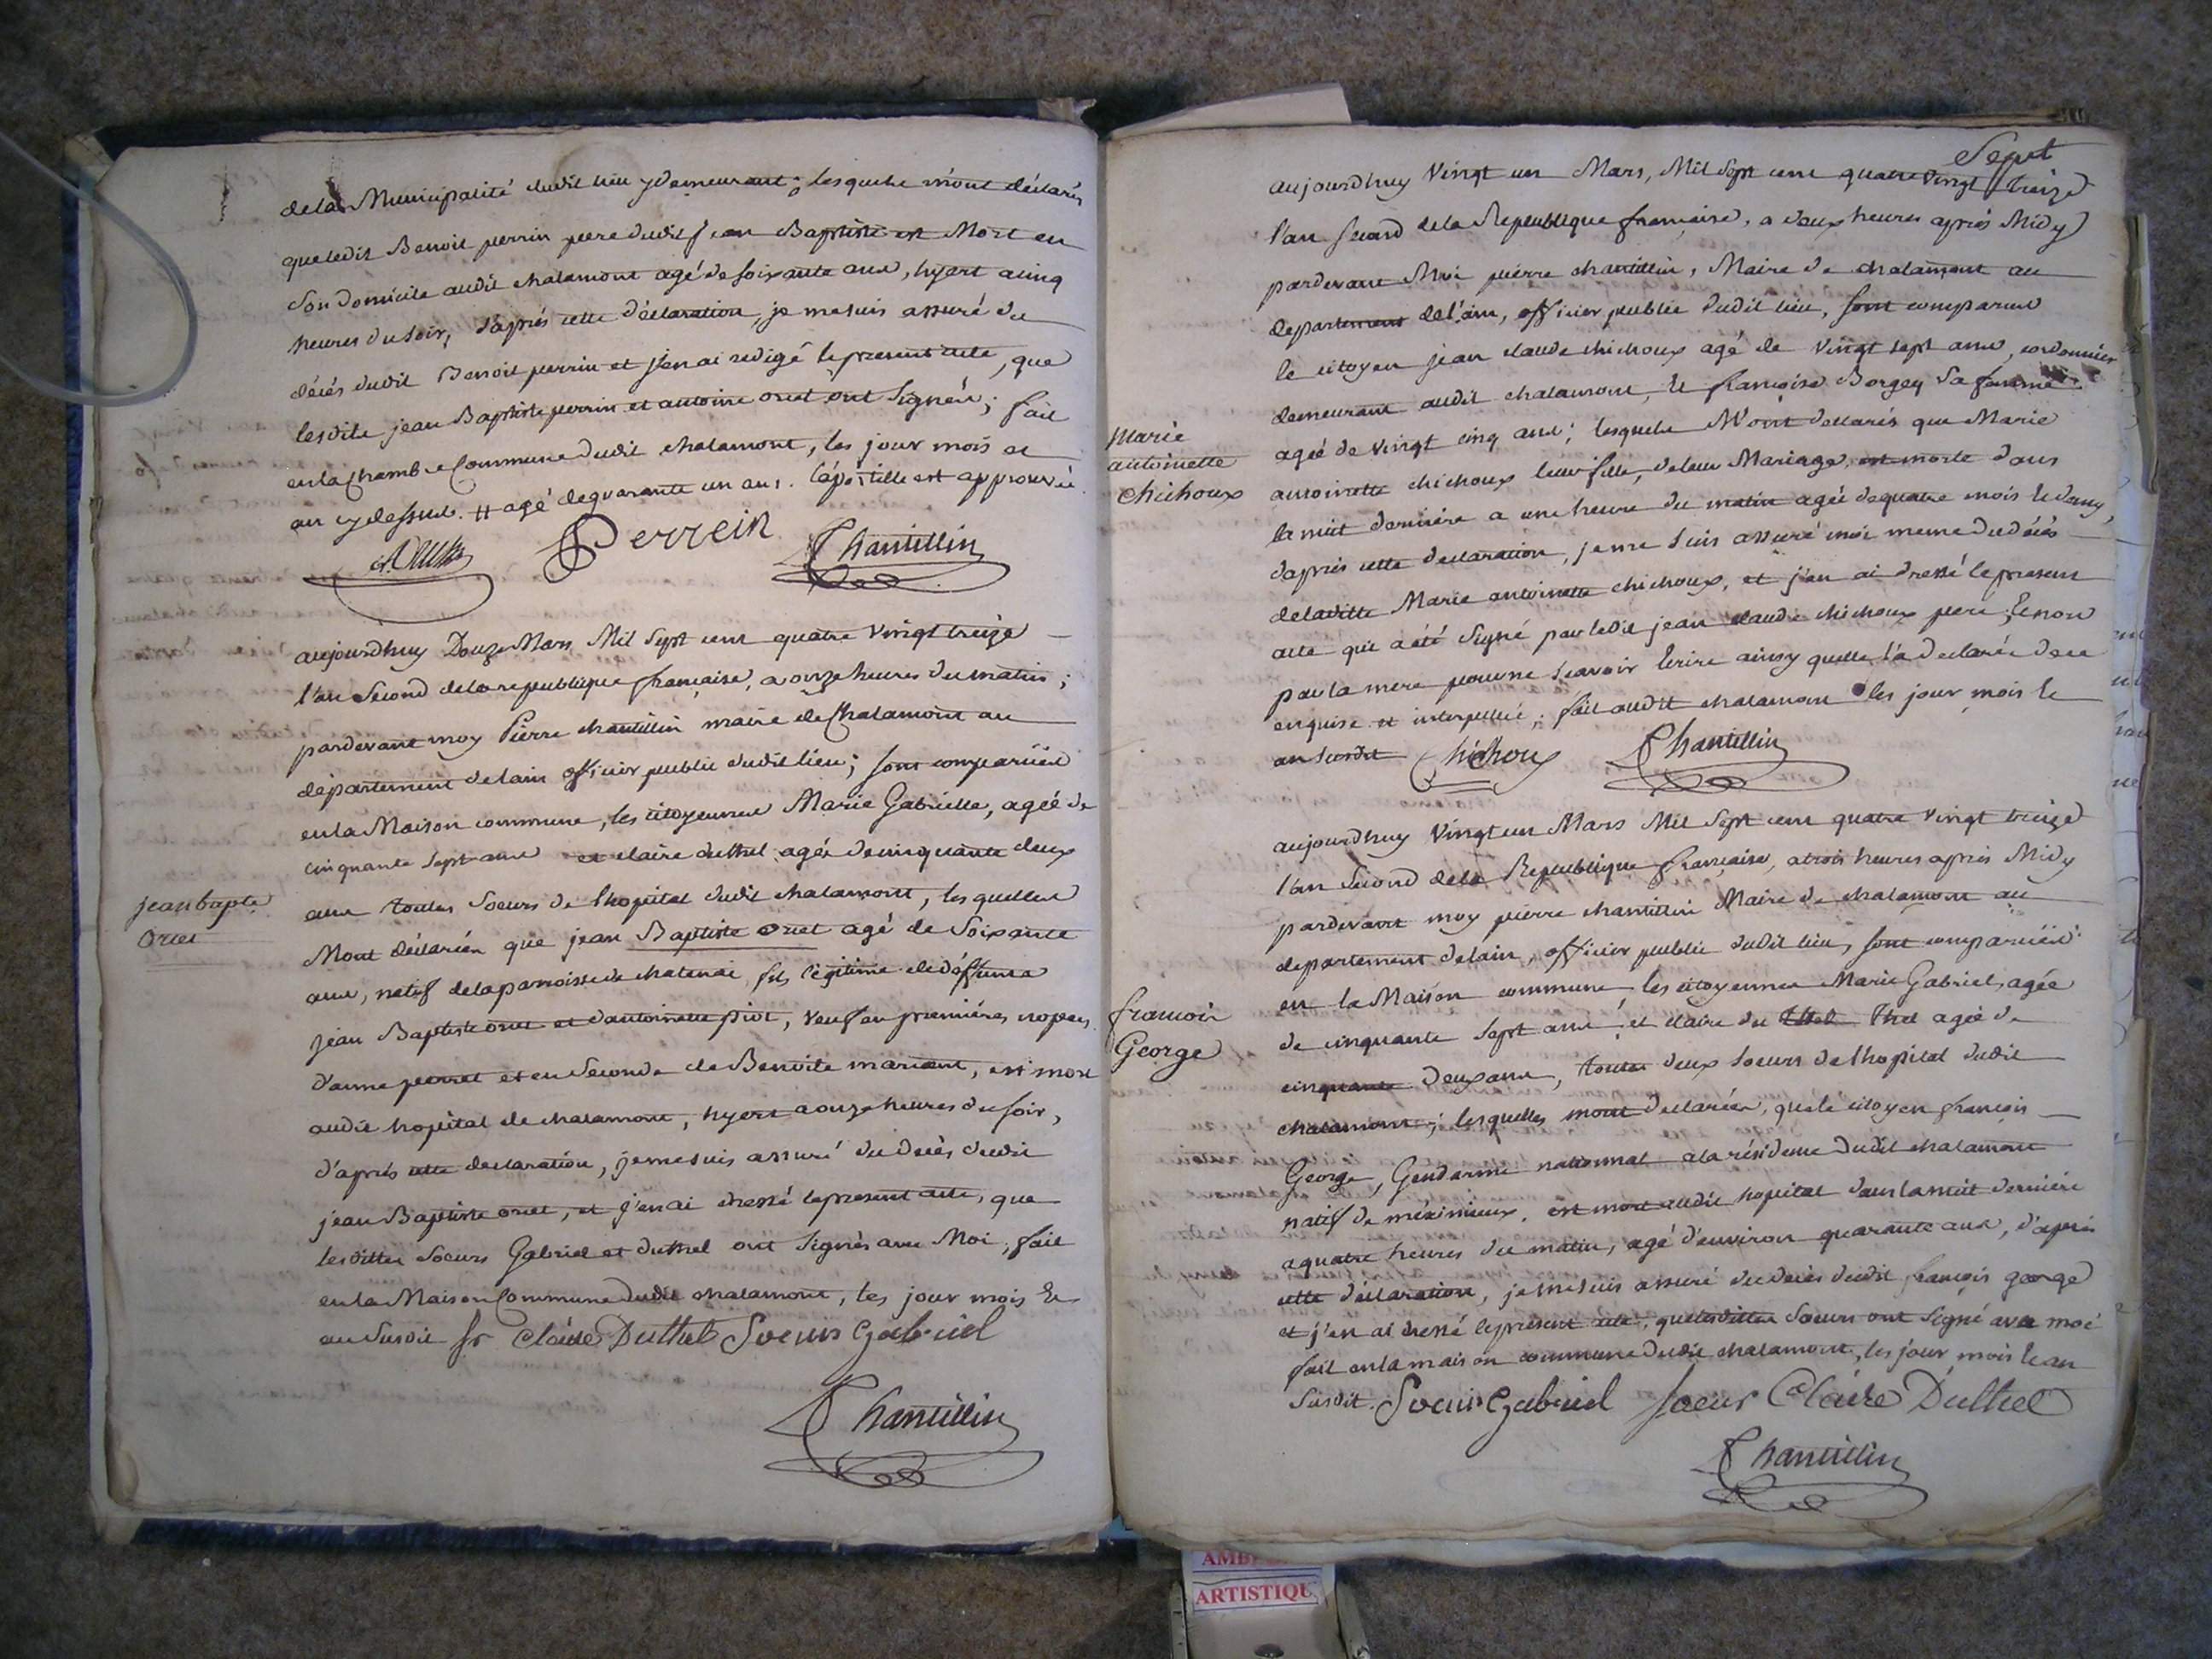 de la Municipalité dudit lieu y demeurant; lesquels m'ont déclarés
que ledit Benoit perrin pere dudit jean Baptiste est Mort en
son domicile audit chalamont agé de soixante ans, hyert a cinq
heures du soir, d'après cette déclaration, je me suis assuré du
décés dudit Benoit perrin et j'en ai redigé le present acte, que
lesdits jean Baptiste perrin et antoine oriet ont signés; fait
en la Chambre Commune dudit chalamont, les jour mois et
an cy dessus. # agé de quarante un ans. l'apostille est approuvée
Perrein Chantillin
aujourdhuy Douze Mars Mil Sept cent quatre vingt treize
l'an Second de la republique française, a onze heures du matin;
pardevant moy Pierre chantillin maire de Chalamont au
département de lain officier public dudit lieu; sont comparües
en la Maison commune, les citoyennes Marie Gabrielle, agée de
cinquante sept ans et claire duthel agée de cinquante deux
jean bapte
oriet
ans toutes Soeurs de lhopital dudit chalamont, lesquelles
Mont déclarées que jean Baptiste oriet agé de Soixante
ans, natif de la parroisse de chatenai, fils légitime de déffunts
jean Baptiste oriet et dantoinette piot, veuf en premières nopces
d'anne perret et en Seconde de Benoite mariant, est mort
audit hopital de chalamont, hyert a onze heures du soir,
d'après cette declaration, je me suis assuré du decès dudit
jean Baptiste oriet, et j'en ai dressé le present acte, que
lesdittes Soeurs Gabriel et duthel ont signés avec Moi, fait
en la Maison Commune dudit chalamont, les jour mois et
an Susdit Sr Claire Duthel Soeurs Gabriel
Chantillin
Sept
aujourdhuy Vingt un Mars, Mil Sept cent quatre vingt treize
l'an Second de la Republique française, a deux heures après Midy
pardevant Moi pierre chantillin, Maire de chalamont au
departement de l'ain, officier public dudit lieu, sont comparus
le citoyen jean claude chichoux agé de vingt sept ans, cordonnier
demeurant audit chalamont, et françoise Borgey sa femme
Marie
antoinette
Chichoux
agée de vingt cinq ans; lesquels M'ont declarés que Marie
antoinette chichoux leur fille, de leur Mariage, est morte dans
la nuit derniere a une heure du matin agée de quatre mois et demy,
d'après cette declaration, je me suis assuré moi meme du décés
de laditte Marie antoinette chichoux, et j'en ai dressé le present
acte qui a été signé par ledit jean claude chichoux pere, et non
par la mere pour ne scavoir Ecrire ainsy quelle l'a declarée de ce
enquise et interpellée; fait audit chalamont les jour mois et
an Susdit Chichoux Chantillin
aujourdhuy Vingt un Mars Mil Sept cent quatre vingt treize
l'an Second de la Republique française, a trois heures après Midy
pardevant moy pierre chantillin Maire de chalamont au
departement de lain, officier public dudit lieu, sont comparües
francois
George
en la Maison commune, les citoyennes Marie Gabriel, agée
de cinquante Sept ans, et claire du Thel agée de
cinquante deux ans, toutes deux Soeurs de lhopital dudit
chalamont; lesquelles mont declarées, que le citoyen françois
George, Gendarme nationnal a la résidence dudit chalamont
natif de méximieux, est mort audit hopital dans la nuit derniere
a quatre heures du matin, agé d'environ quarante ans, d'après
cette déclaration, je me suis assuré du decès dudit françois george
et j'en ai dressé le present acte, que lesdittes Soeurs ont signé avec moi
fait en la maison commune dudit chalamont, les jour mois et an
Susdit. Soeurs Gabriel Soeur Claire Duthel
Chantillin
ARTISTIQU